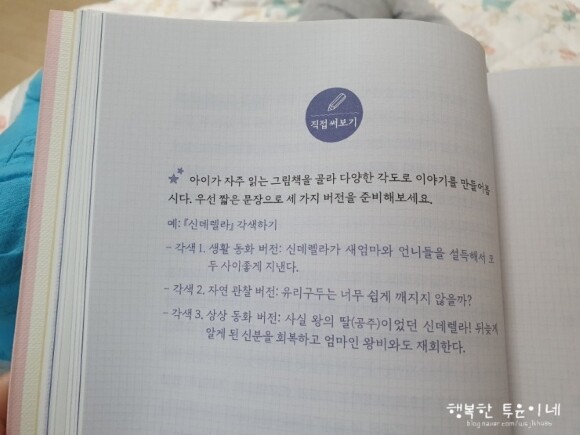 직접 써보기
아이가 자주 읽는 그림책을 골라 다양한 각도로 이야기를 만들어봅
시다. 우선 짧은 문장으로 세 가지 버전을 준비해보세요.
예: 『신데렐라』 각색하기
- 각색 1. 생활 동화 버전: 신데렐라가 새엄마와 언니들을 설득해서 모
두 사이좋게 지낸다.
- 각색 2. 자연 관찰 버전: 유리구두는 너무 쉽게 깨지지 않을까?
- 각색 3. 상상 동화 버전: 사실 왕의 딸(공주)이었던 신데렐라! 뒤늦게
알게 된 신분을 회복하고 엄마인 왕비와도 재회한다.
행복한 투윤이네